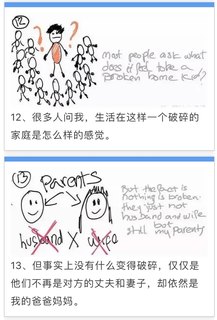 12
? ?
most people ask what
does it feel like a
broken home kid?
12、很多人问我，生活在这样一个破碎的
家庭是怎么样的感觉。
13
parents
husband X wife
But the fact is
nothing is broken.
they just not
husband and wife
but
still my parents
13、但事实上没有什么变得破碎，仅仅是
他们不再是对方的丈夫和妻子，却依然是
我的爸爸妈妈。